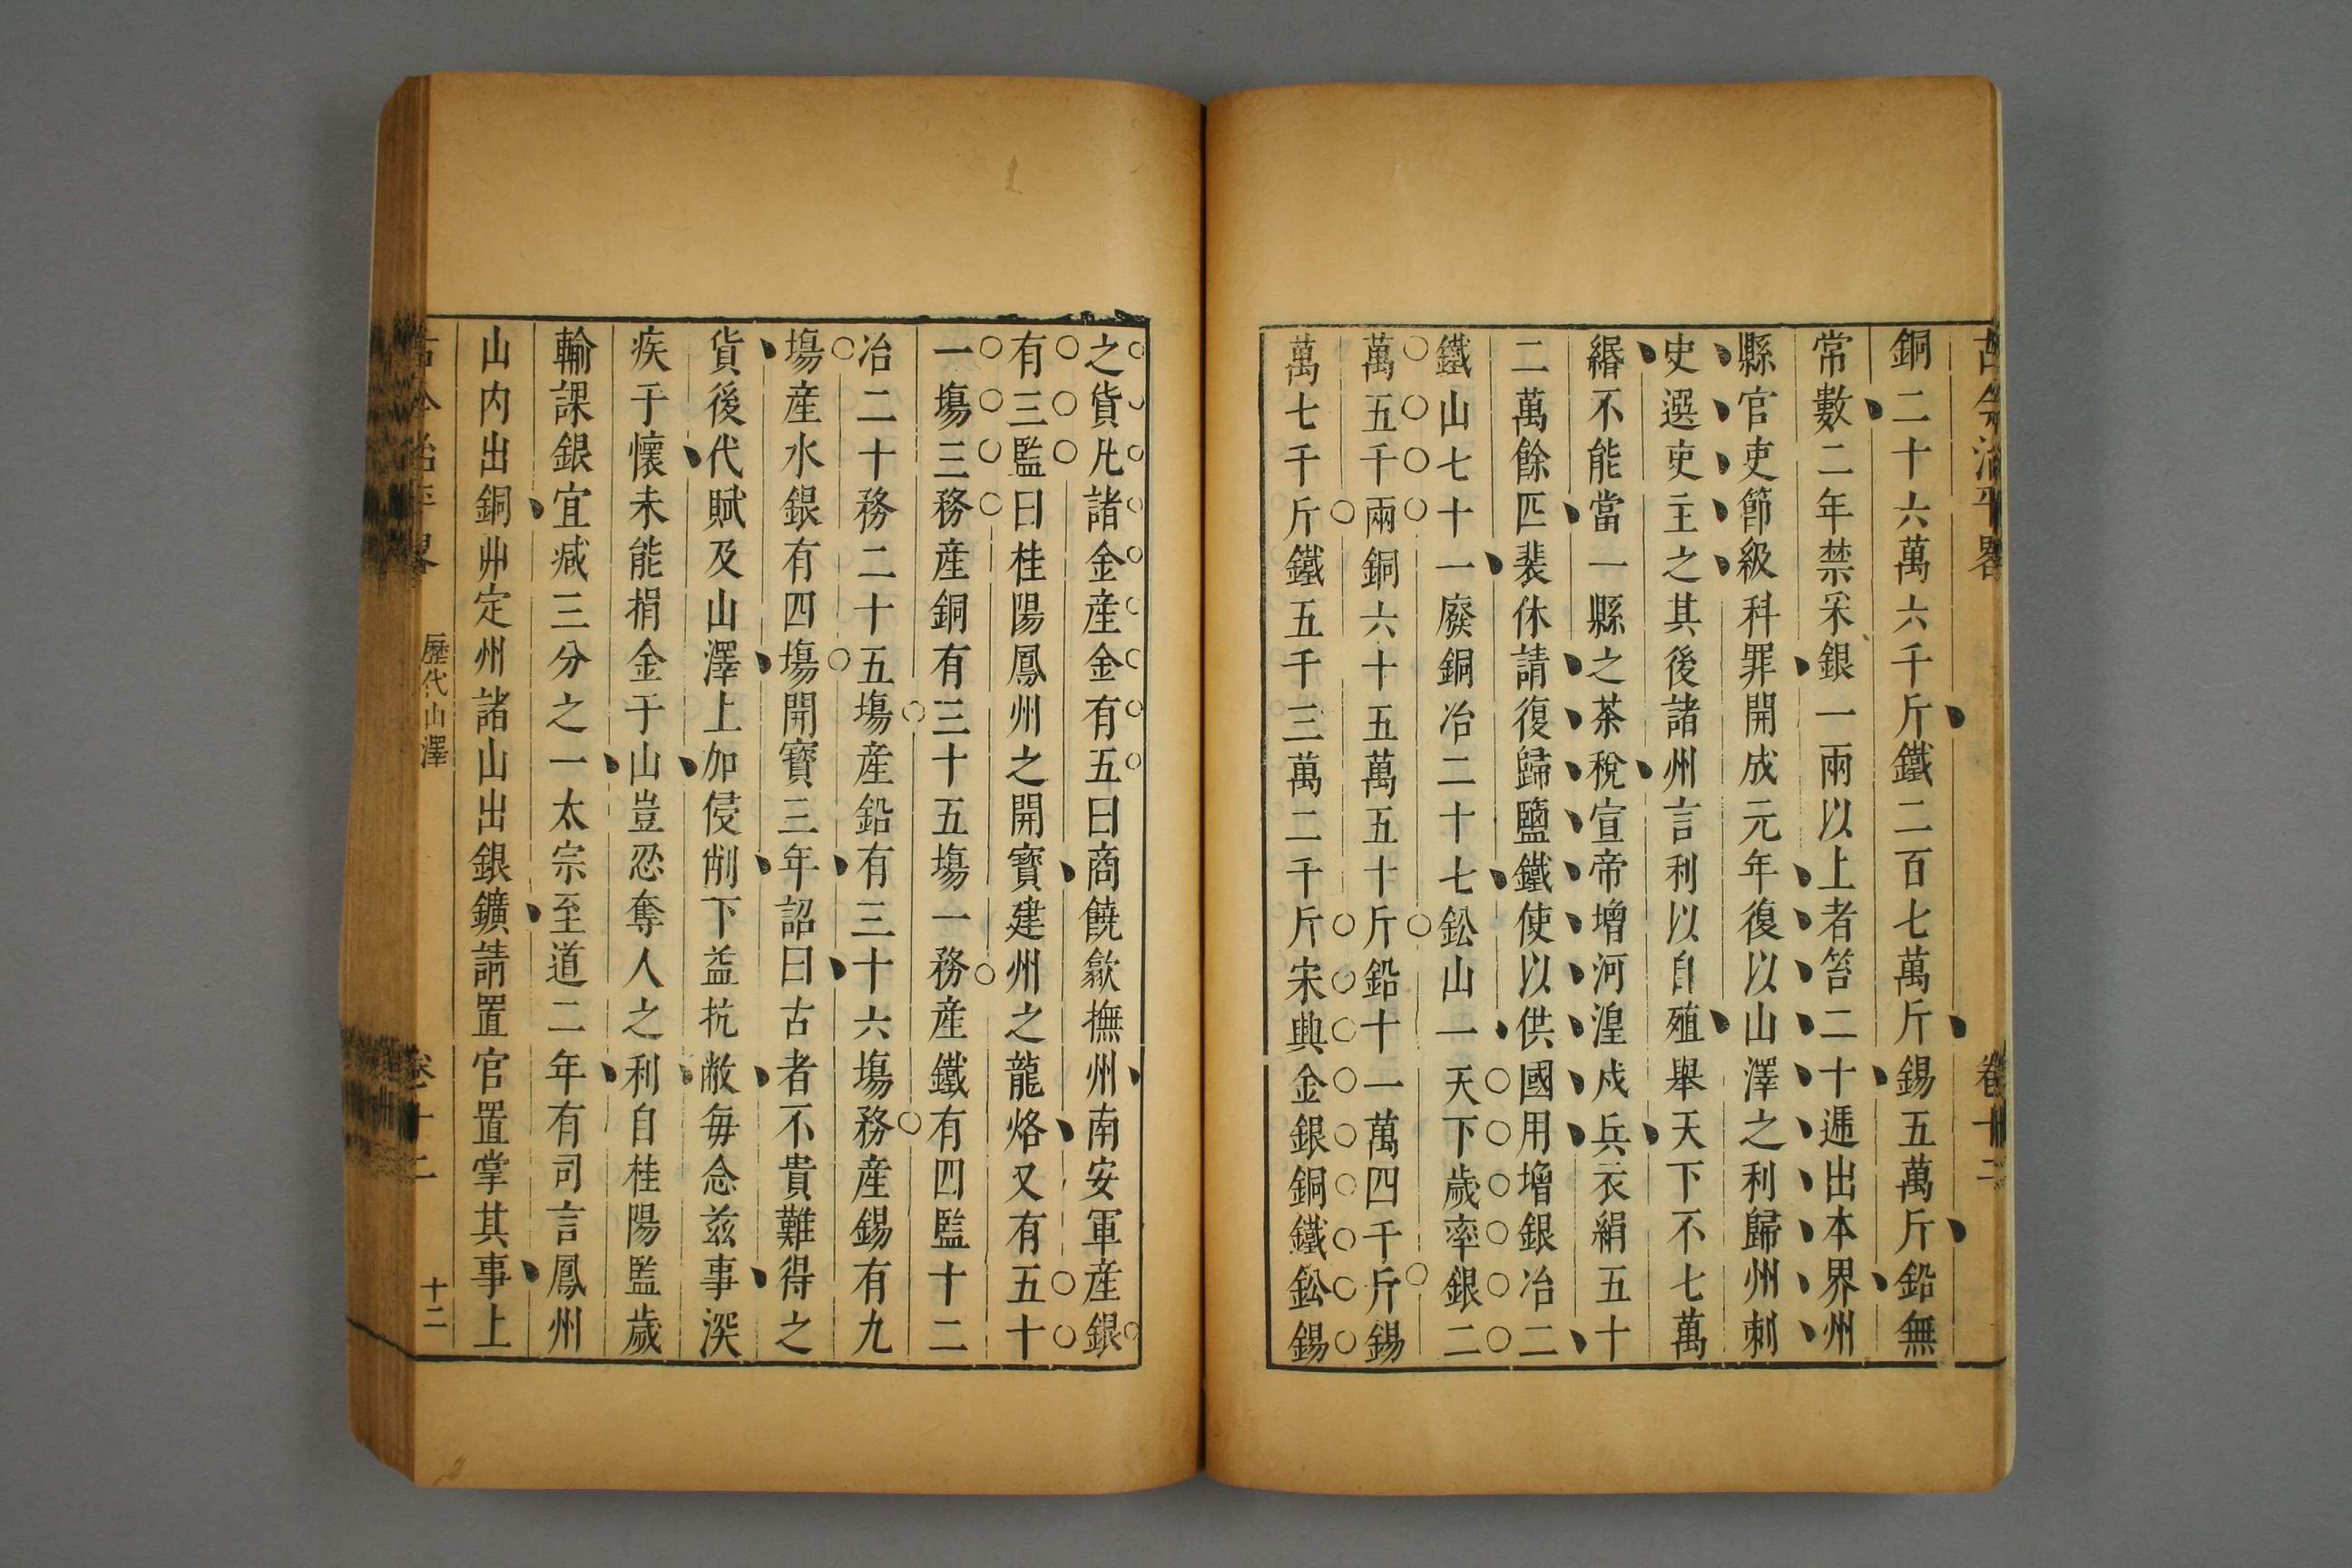 古今治平畧 卷十二
銅二十六萬六千斤鐵二百七萬斤錫五萬斤鉛無
常數二年禁采銀一兩以上者笞二十逓出本界州
縣官吏節級科罪開成元年復以山澤之利歸州刺
史選吏主之其後諸州言利以自殖舉天下不七萬
緡不能當一縣之茶稅宣帝增河湟戍兵衣絹五十
二萬餘匹裴休請復歸鹽鐵使以供國用增銀冶二
鐵山七十一廢銅冶二十七鈆山一天下歲率銀二
萬五千兩銅六十五萬五十斤鉛十一萬四千斤錫
萬七千斤鐵五千三萬二千斤宋興金銀銅鐵鈆錫
之貨凡諸金産金有五曰商饒歙撫州南安軍産銀
有三監曰桂陽鳳州之開寳建州之龍焙又有五十
一塲三務産銅有三十五塲一務産鐵有四監十二
冶二十務二十五塲産鉛有三十六塲務産錫有九
塲産水銀有四塲開寳三年詔曰古者不貴難得之
貨後代賦及山澤上加侵削下益抗敝每念兹事深
疾于懷未能捐金于山豈忍奪人之利自桂陽監歲
輸課銀宜减三分之一太宗至道二年有司言鳳州
山内出銅丱定州諸山出銀鑛請置官置掌其事上
古今治平畧 歷代山澤 卷十二 十二